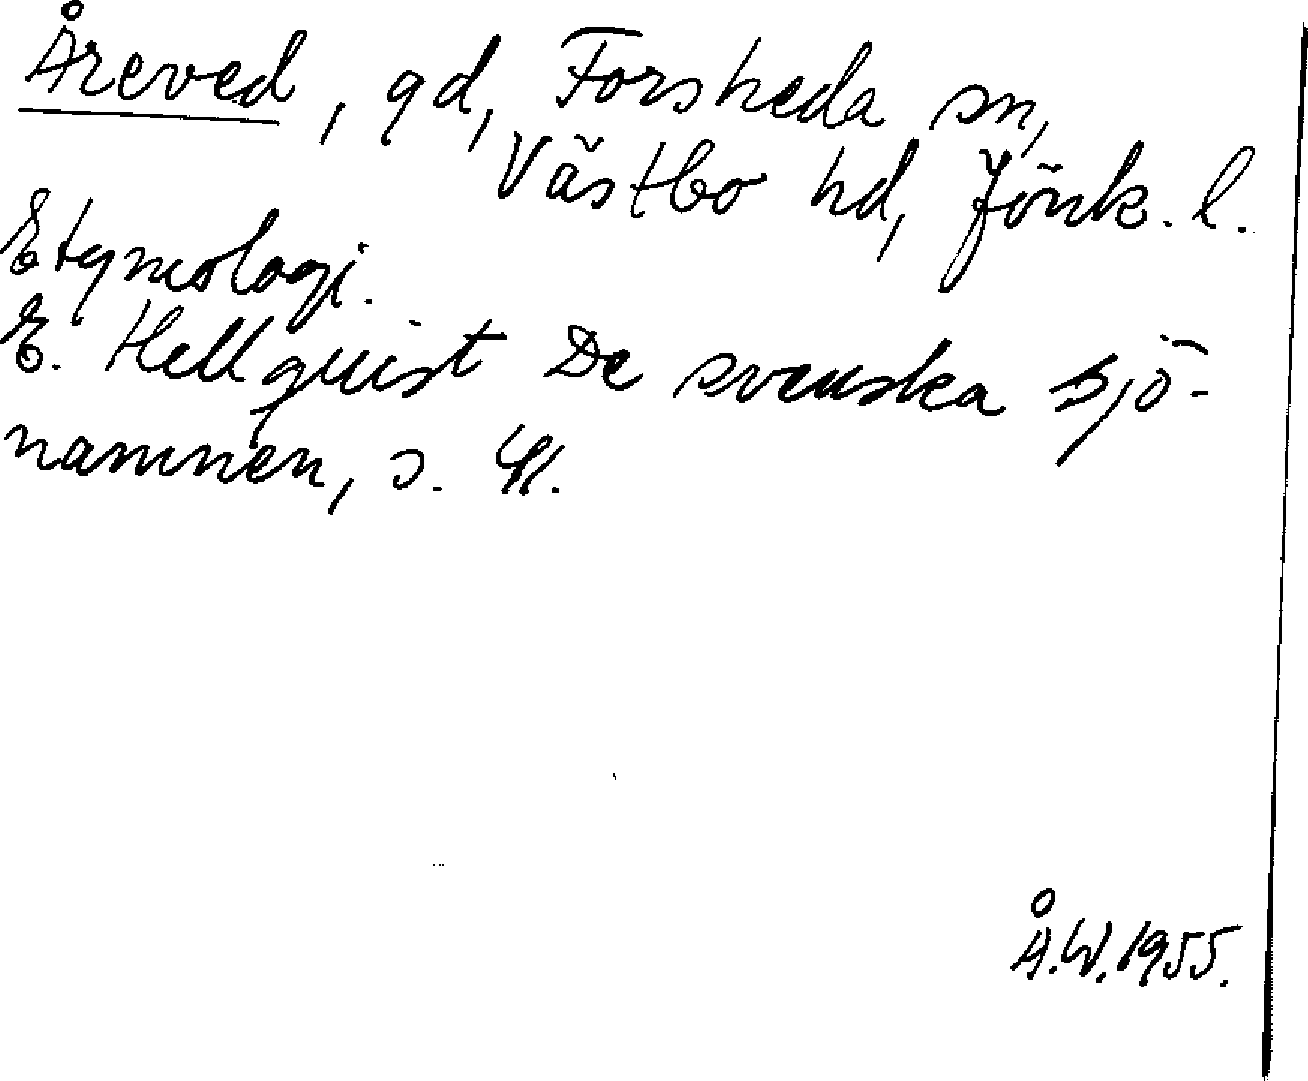 Åreved, gd, Forsheda sn,
Västbo hd, Jönk. l.
Etymologi.
E. Hellquist De svenska sjö-
namnen, s.
Å.W. 1955.